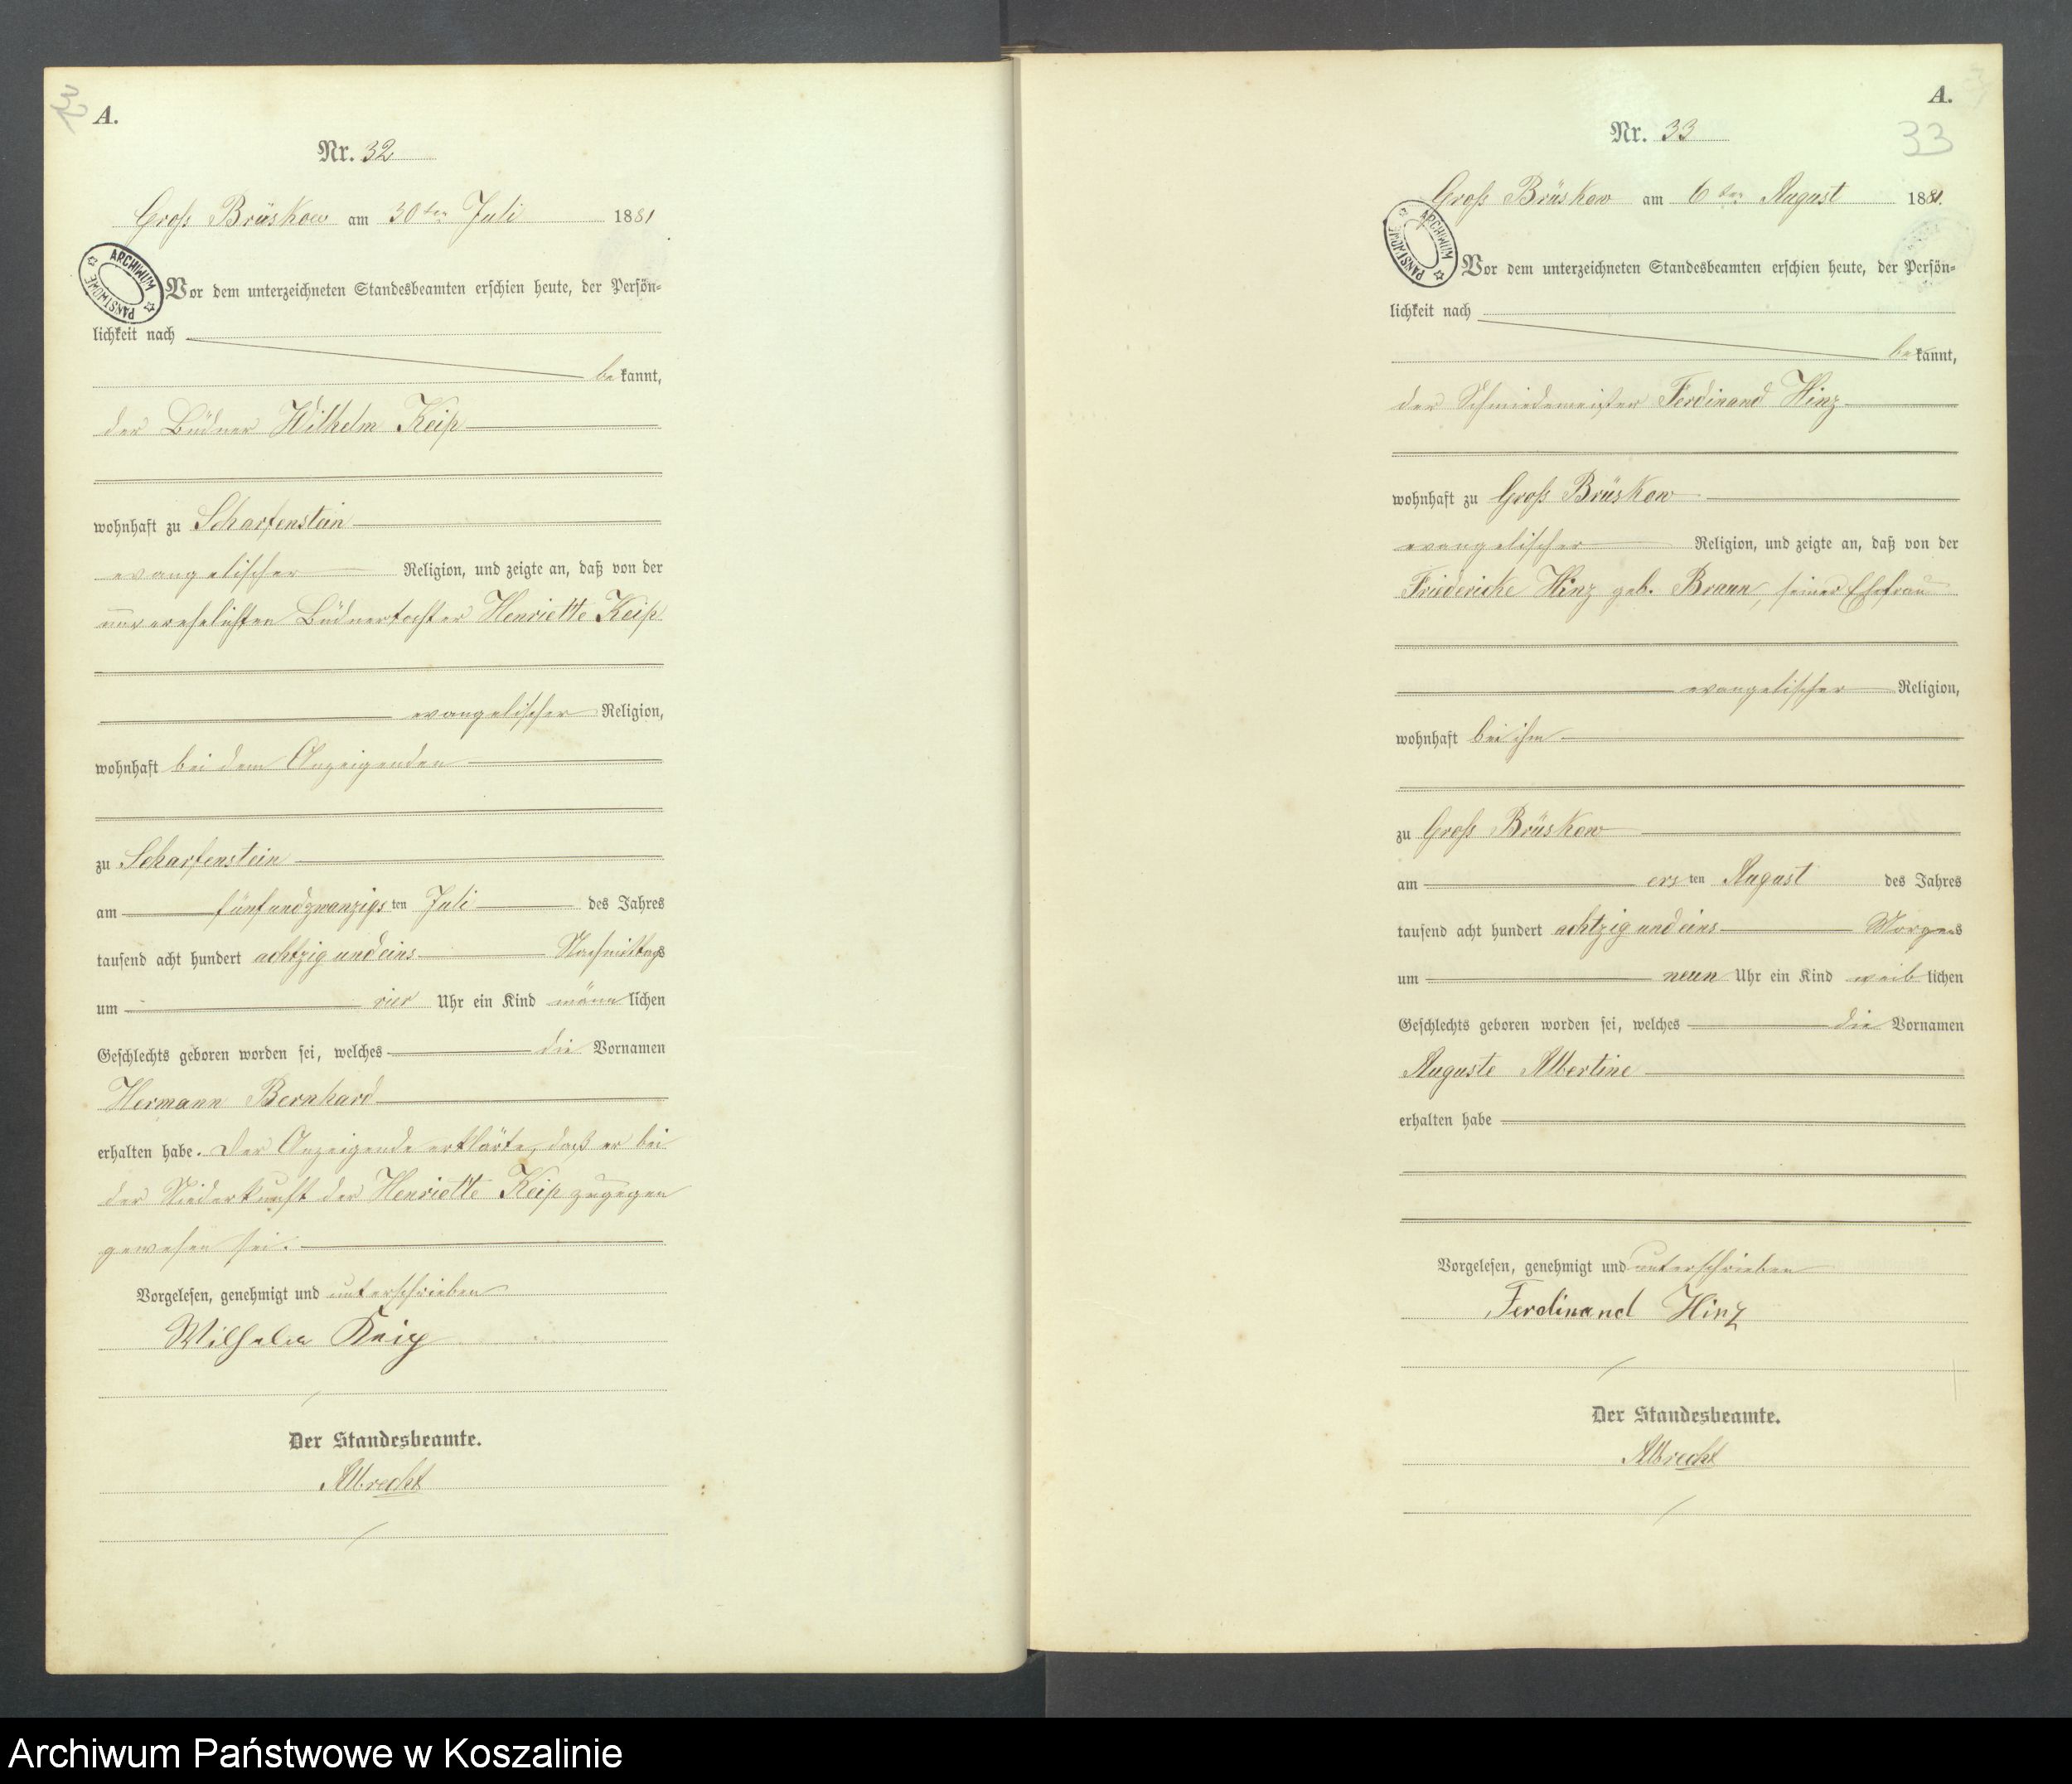 32
A.
Nr. 32
Groß Brüskow am 30ten Juli 1881
ARCHIWUM PAŃSTWOWE
Vor dem unterzeichneten Standesbeamten erschien heute, der Persön-
lichkeit nach
bekannt,
der Büdner Wilhelm Keip
wohnhaft zu Scharfenstein
evangelischer Religion, und zeigte an, daß von der
unverehelichten Büdnertochter Henriette Keip
evangelischer Religion,
wohnhaft bei dem Anzeigenden
zu Scharfenstein
am fünfundzwanzigsten Juli des Jahres
tausend acht hundert achtzig und eins Nachmittags
um vier Uhr ein Kind männlichen
Geschlechts geboren worden sei, welches die Vornamen
Hermann Bernhard
erhalten habe. Der Anzeigende erklärte, daß er bei
der Niederkunft der Henriette Keip zugegen
gewesen sei.
Vorgelesen, genehmigt und unterschrieben
Wilhelm Keip
Der Standesbeamte.
Albrecht
A.
33
Nr. 33
Groß Brüskow am 6ten August 1881.
ARCHIWUM PAŃSTWOWE
Vor dem unterzeichneten Standesbeamten erschien heute, der Persön-
lichkeit nach
bekannt,
der Schmiedemeister Ferdinand Hinz
wohnhaft zu Groß Brüskow
evangelischer Religion, und zeigte an, daß von der
Friedericke Hinz geb. Braun, seiner Ehefrau
evangelischer Religion,
wohnhaft bei ihm
zu Groß Brüskow
am ersten August des Jahres
tausend acht hundert achtzig und eins Morgens
um neun Uhr ein Kind weiblichen
Geschlechts geboren worden sei, welches die Vornamen
Auguste Albertine
erhalten habe
Vorgelesen, genehmigt und unterschrieben
Ferdinand Hinz
Der Standesbeamte.
Albrecht
Archiwum Państwowe w Koszalinie